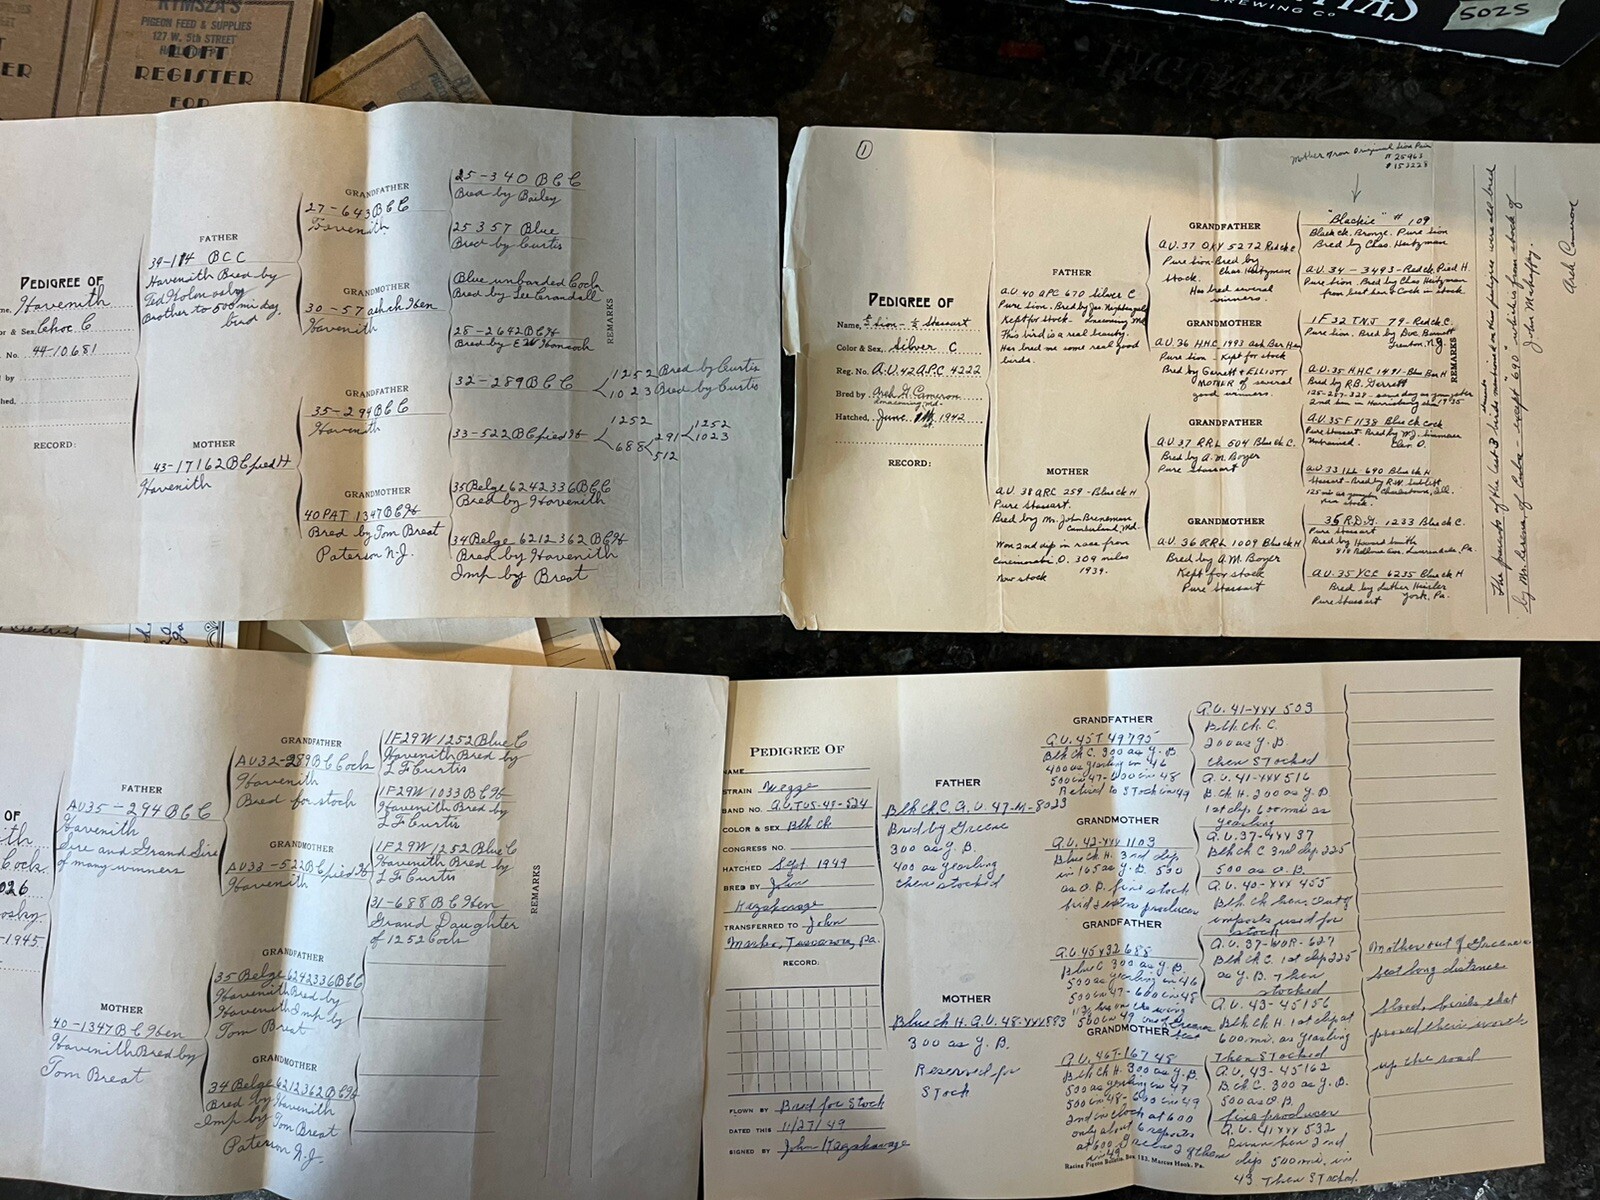 RYMSZA'S
PIGEON FEED & SUPPLIES
127 W. 5th STREET
LOFT
REGISTER
FOR
ER
BREWING CO
5025
PEDIGREE OF
Havenith
Choc C
No. 44-10681
RECORD:
FATHER
39-114 BCC
Havenith Bred by
Ted Golombosky
Brother to 500 mi day
bird
MOTHER
43-17162 BC pied H
Havenith
GRANDFATHER
27-643 BCC
Havenith
GRANDMOTHER
30-57 ash ck Hen
Havenith
GRANDFATHER
35-294 BCC
Havenith
GRANDMOTHER
40 PAT 1347 BCH
Bred by Tom Breat
Paterson N.J.
25-340 BCC
Bred by Bailey
25 357 Blue
Bred by Curtis
Blue unbanded Cock
Bred by Lee Crandall
28-2642 BCH
Bred by E W
32-289 BCC
1252 Bred by Curtis
1023 Bred by Curtis
33-522 BC pied H
1252
688
291
512
1252
1023
35 Belge 6242336 BCC
Bred by Havenith
34 Belge 6212362 BCH
Bred by Havenith
Imp by Breat
REMARKS
①
Mother from Original Sion Pair
# 25963
# 153223
PEDIGREE OF
Name, ½ Sion - ½ Stassart
Color & Sex, Silver C
Reg. No. A.U. 42 APC 4222
Bred by Arch G. Cameron
Lonaconing Md.
Hatched, June 1942
RECORD:
FATHER
A.U. 40 APC 670 Silver C
Pure Sion. Bred by Jas.
Kept for stock. Lonaconing Md
This bird is a real beauty.
Has bred me some real good
birds.
MOTHER
A.U. 38 ARC 259 - Blue ck H
Pure Stassart.
Bred by Mr. John Breneman
Cumberland, Md.
Won 2nd dip in race from
O. 309 miles
1939.
Now stock
GRANDFATHER
A.U. 37 OKY 5272 Red ck C
Pure Sion - Bred by
Stock. Chas. Heitzman
Has bred several
winners.
GRANDMOTHER
A.U. 36 HHC 1993 Ash Bar Hen
Pure Sion - Kept for stock
Bred by Garrett & ELLIOTT
MOTHER of several
good winners.
GRANDFATHER
A.U. 37 RRL 504 Blue ck C.
Bred by A.M. Boyer
Pure Stassart
GRANDMOTHER
A.U. 36 RRL 1009 Blue ck H
Bred by A.M. Boyer
Kept for stock
Pure Stassart
"Blackie" # 109
Black ck. Bronze. Pure Sion
Bred by Chas Heitzman
A.U. 34 - 3493 - Red ck Pied H.
Pure Sion. Bred by Chas Heitzman
from best hen & Cock in stock
IF 32 TNJ 79 - Red ck C.
Pure Sion. Bred by Doc. Barrett
Trenton, N.J.
A.U. 35 HHC 1491 - Blue Bar H
Bred by R.B. Gerrett
A.U. 35 F 1138 Blue ck cock
Pure Stassart - Bred by W.J.
Untrained. Clev. O.
A.U. 33 ILL 690 Blue ck H
Stassart - Bred by R.W. Sublett
Charlestown, Ill.
35 R.D.H. 1233 Blue ck C.
Pure Stassart
Bred by Howard Smith
818 Bellevue Ave. Laverndale, Pa.
A.U. 35 YCC 6235 Blue ck H
Bred by Luther Heisler
Pure Stassart York, Pa.
REMARKS
John Mahaffey.
Arch Cameron
OF
1945.
FATHER
AU35-294 BCC
Havenith
Sire and Grand Sire
of many winners
MOTHER
40-1347 BC Hen
Havenith Bred by
Tom Breat
GRANDFATHER
AU32-289 BC Cock
Havenith
Bred for stock
GRANDMOTHER
AU33-522 BC pied H
Havenith
GRANDFATHER
35 Belge 6242336 BCC
Havenith Bred by
Havenith Imp by
Tom Breat
GRANDMOTHER
34 Belge 6212362 BCH
Bred by Havenith
Imp by Tom Breat
Paterson N.J.
IF29W 1252 Blue C
Havenith Bred by
L F Curtis
IF29W 1033 BCH
Havenith Bred by
L F Curtis
IF29W 1252 Blue C
Havenith Bred by
L F Curtis
31-688 BC Hen
Grand Daughter
of 1252 Cock
REMARKS
PEDIGREE OF
NAME
STRAIN Wegge
BAND NO. A.U. TUS-49-524
COLOR & SEX Blk Ck
CONGRESS NO.
HATCHED Sept 1949
BRED BY John
Kazakavage
TRANSFERRED TO John
Marko, Tuscarora, Pa.
RECORD:
FLOWN BY Bred for Stock
DATED THIS 11/27/49
SIGNED BY John Kazakavage
FATHER
Blk Ck C. A.U. 47-M-8023
Bred by Greene
300 as Y.B.
400 as yearling
then stocked
MOTHER
Blue ck H. A.U. 48-XXX883
300 as Y.B.
Reserved for
Stock
GRANDFATHER
A.U. 45T 49795
Blk Ck C. 300 as Y.B.
400 as yearling in 46
500 in 47-600 in 48
Retired to stock in 49
GRANDMOTHER
A.U. 42-XXX 1103
Blue ck H. 3rd dip
in 165 as Y.B. 500
as O.B. fine stock
bird & producer
GRANDFATHER
A.U. 45Y32688
Blue C 300 as Y.B.
500 as yearling in 46
500 in 47-600 in 48
GRANDMOTHER
A.U. 46T-167 48
Blk Ck H. 300 as Y.B.
500 as yearling in 47
500 in 48-600 in 49
2nd in clock at 600
only about 6 reports
Racing Pigeon Bulletin, Box 182, Marcus Hook, Pa.
A.U. 41-XXX 503
Blk Ck C.
200 as Y.B
then stocked
A.U. 41-XXX 516
Blk H. 200 as Y.B
1st dip 600 mi as
yearling
A.U. 37-XXX 37
Blk Ck C 3rd dip 225
500 as O.B.
A.U. 40-XXX 455
Blk Ck hen. Out of
imports used for
stock
A.U. 37-WOR-627
Blk Ck C. 1st dip 225
as Y.B. then
stocked
A.U. 43-45156
Blk Ck H. 1st dip at
600 mi. as yearling
Then Stocked
A.U. 43-45162
Blk C. 300 as Y.B.
500 as O.B.
fine producer
A.U. 41XXX 532
hen 2nd
dip 500 mi. in
43 Then Stocked.
Mother out of Greene's
best long distance
blood, birds that
proved their worth
up the road